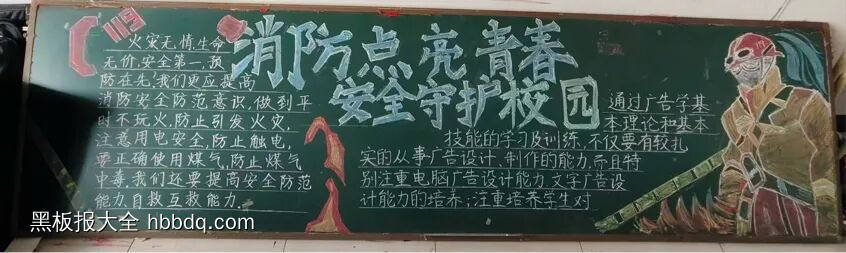 119
火灾无情,生命
无价,安全第一,预
防在先,我们更应提高
消防安全防范意识,做到平
时不玩火,防止引发火灾,
注意用电安全,防止触电,
要正确使用煤气,防止煤气
中毒,我们还要提高安全防范
能力,自救互救能力.
消防点亮青春
安全守护校园
通过广告学基
本理论和基本
技能的学习及训练,不仅要有较扎
实的从事广告设计、制作的能力,而且特
别注重电脑广告设计能力,文字广告设
计能力的培养;注重培养学生对
黑板报大全 hbbdq.com